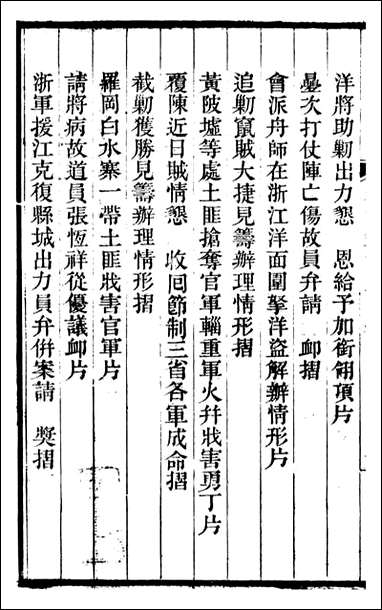 洋將助勦出力懇　恩給予加銜翎項片
疊次打仗陣亡傷故員弁請　卹摺
會派舟師在浙江洋面圍拏洋盜解辦情形片
追勦竄賊大捷見籌辦理情形摺
黃陂墟等處土匪搶奪官軍輜重軍火幷戕害勇丁片
覆陳近日賊情懇　收囘節制三省各軍成命摺
截勦獲勝見籌辦理情形摺
羅岡白水寨一帶土匪戕害官軍片
請將病故道員張恆祥從優議卹片
浙軍援江克復縣城出力員弁倂案請　獎摺